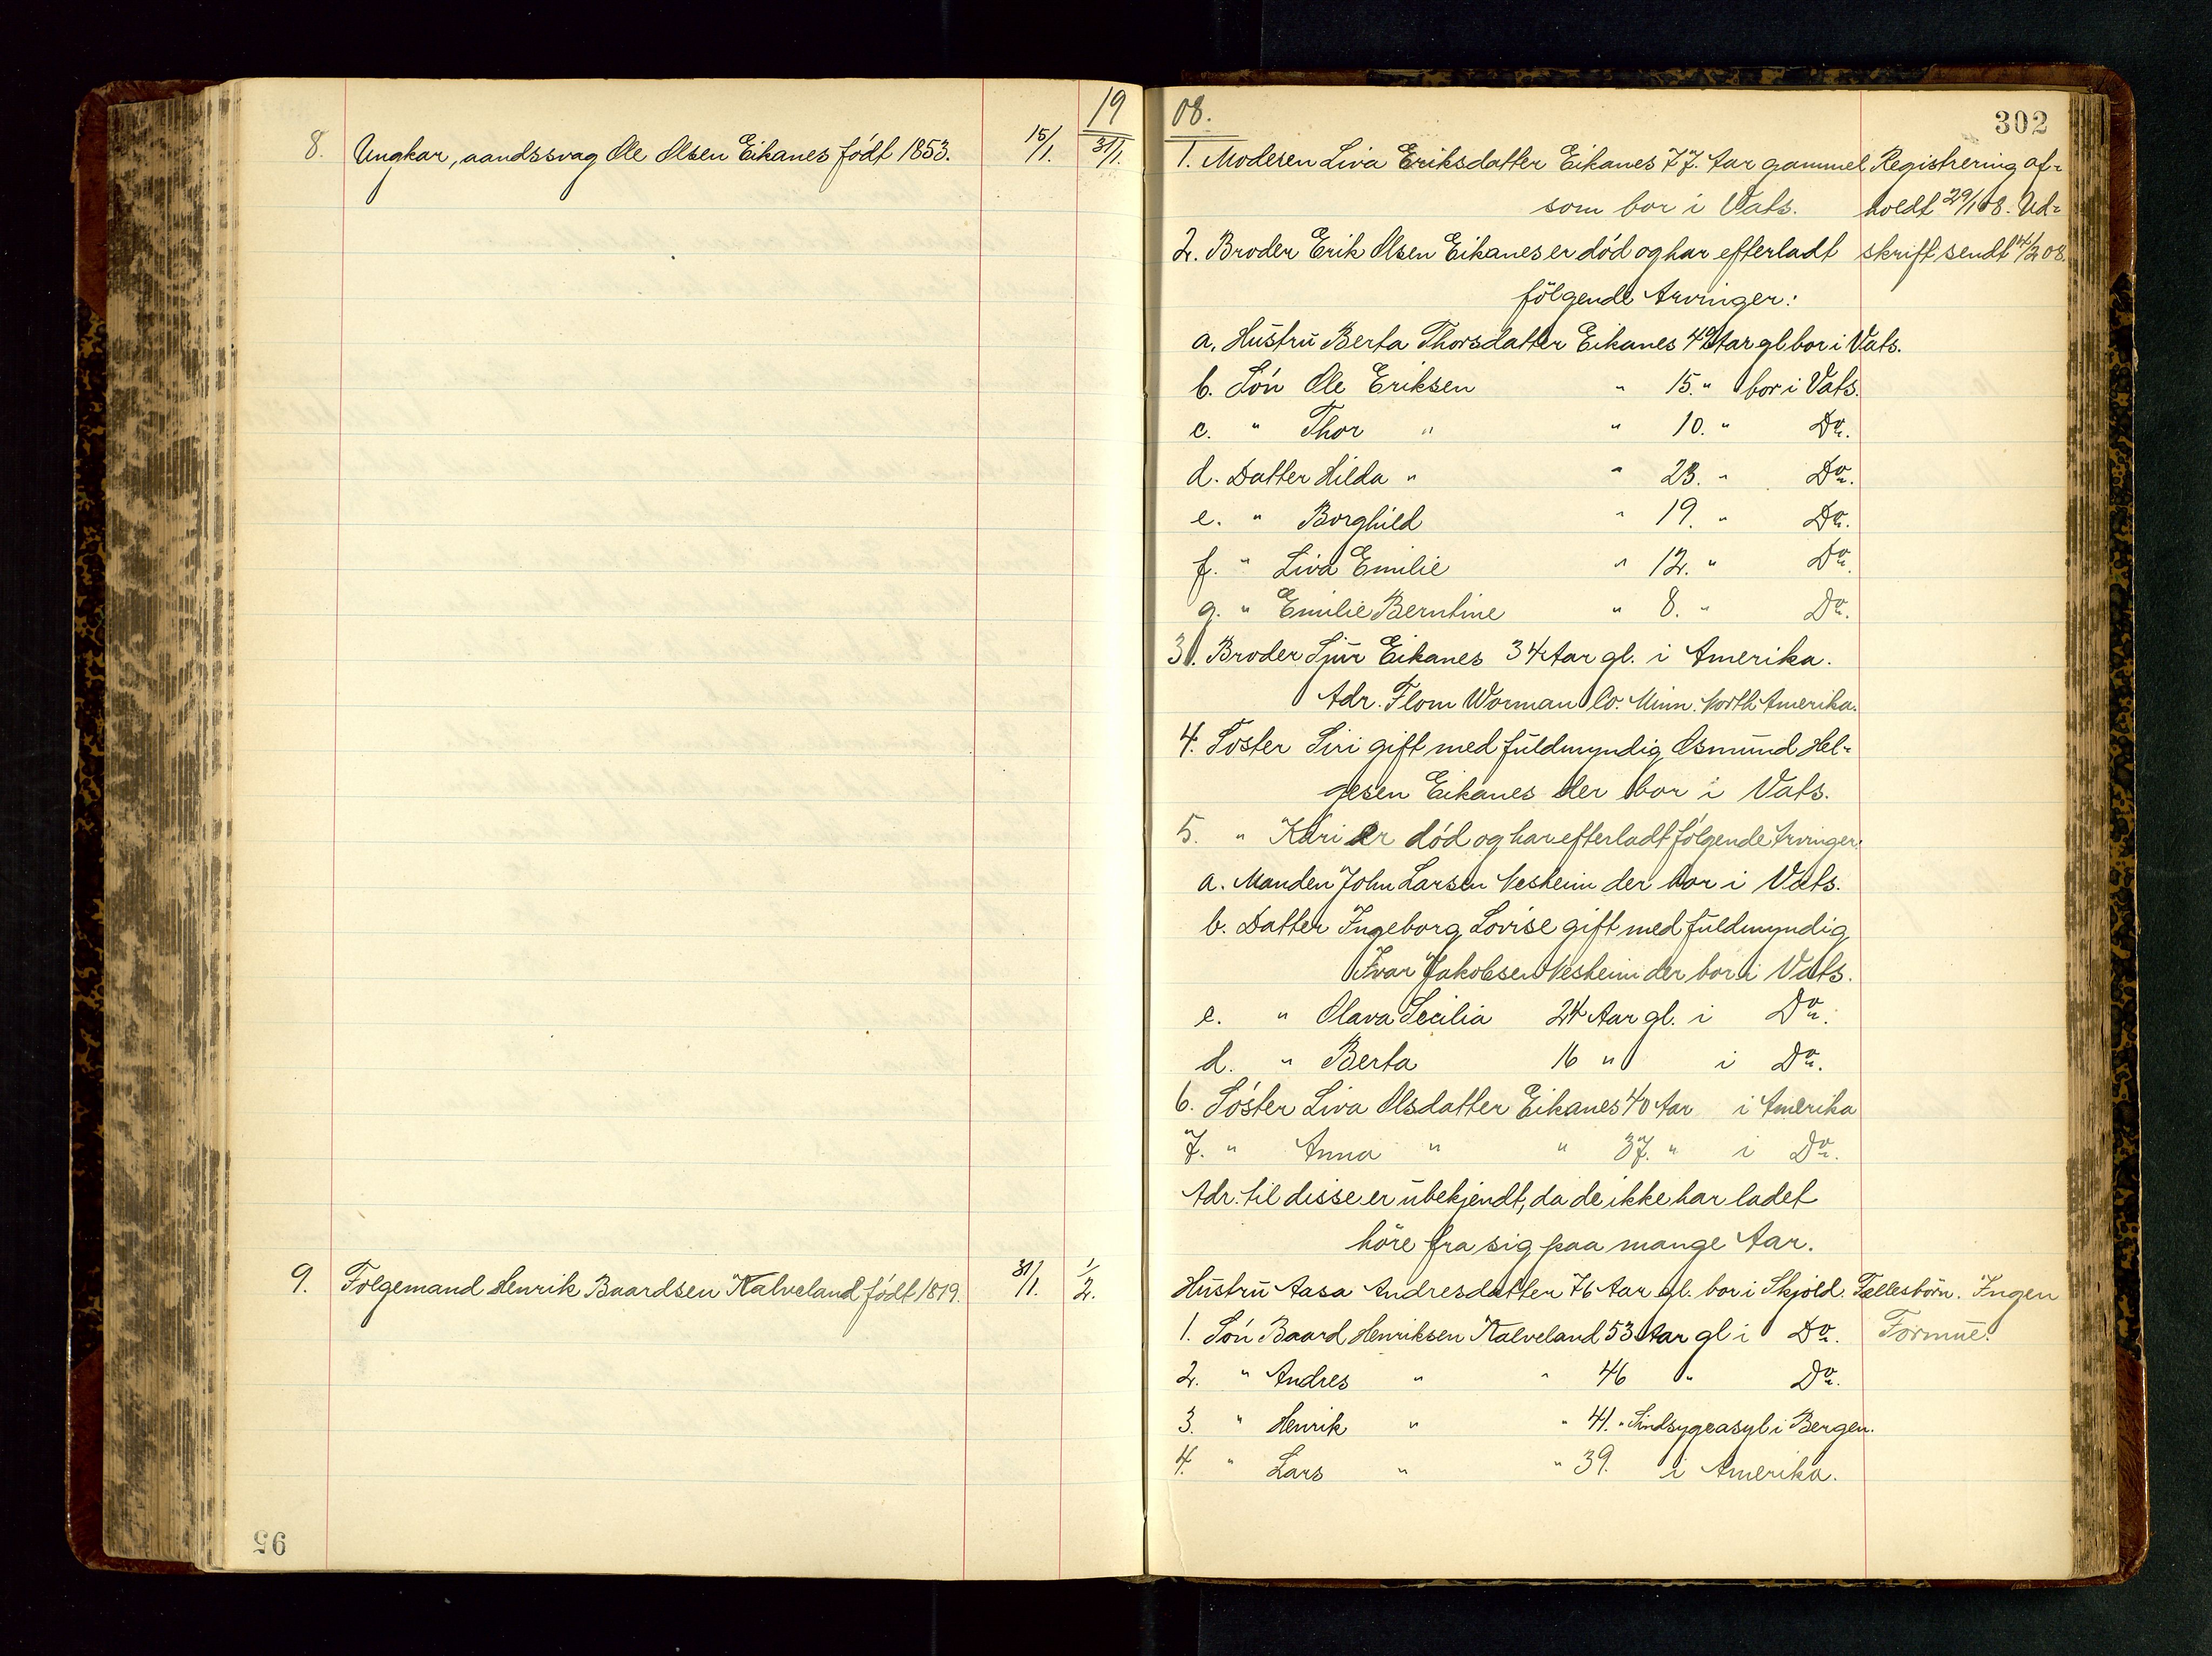 1908.
302
8. Ungkar, aandssvag Ole Olsen Eikanes födt 1853. 15/1. 31/1.
1. Moderen Liva Eriksdatter Eikanes 77. Aar gammel Registrering af-
som bor i Vats. holdt 29/1 08. Ud-
2. Broder Erik Olsen Eikanes er död og har efterladt skrift sendt 4/2 08.
fölgende Arvinger:
a. Hustru Berta Thorsdatter Eikanes 49 Aar gl. bor i Vats.
b. Sön Ole Eriksen " 15. " bor i Vats.
c. " Thor " " 10. " Do.
d. Datter Hilda " " 23. " Do.
e. " Borghild " 19. " Do.
f. " Liva Emilie " 12. " Do.
g. " Emilie Berntine " 8. " Do.
3. Broder Sjur Eikanes 34 Aar gl. i Amerika.
Adr. Flom Worman Co. Minn. North Amerika.
4. Söster Siri gift med fuldmyndig Osmund Hel-
gesen Eikanes der bor i Vats.
5. " Kari er död og har efterladt fölgende Arvinger:
a. Manden John Larsen Vesheim der bor i Vats.
b. Datter Ingeborg Lovise gift med fuldmyndig
Ivar Jakobsen Vesheim der bor i Vats.
c. " Olava Secilia 24 Aar gl. i Do.
d. " Berta 16 " i Do.
6. Söster Liva Olsdatter Eikanes 40 Aar i Amerika
7. " Anna " " 37. " i Do.
Adr. til disse er ubekjendt, da de ikke har ladet
höre fra sig paa mange Aar.
9. Folgemand Henrik Baardsen Kalveland födt 1819. 31/1. 1/2.
Hustru Aasa Andresdatter 76 Aar gl. bor i Skjold. Fællesbörn. Ingen
1. Sön Baard Henriksen Kalveland 53 Aar gl i Do. Formue.
2. " Andres " " 46 " Do.
3. " Henrik " " 41. " Sindsygeasyl i Bergen.
4. " Lars " " 39. i Amerika.
95